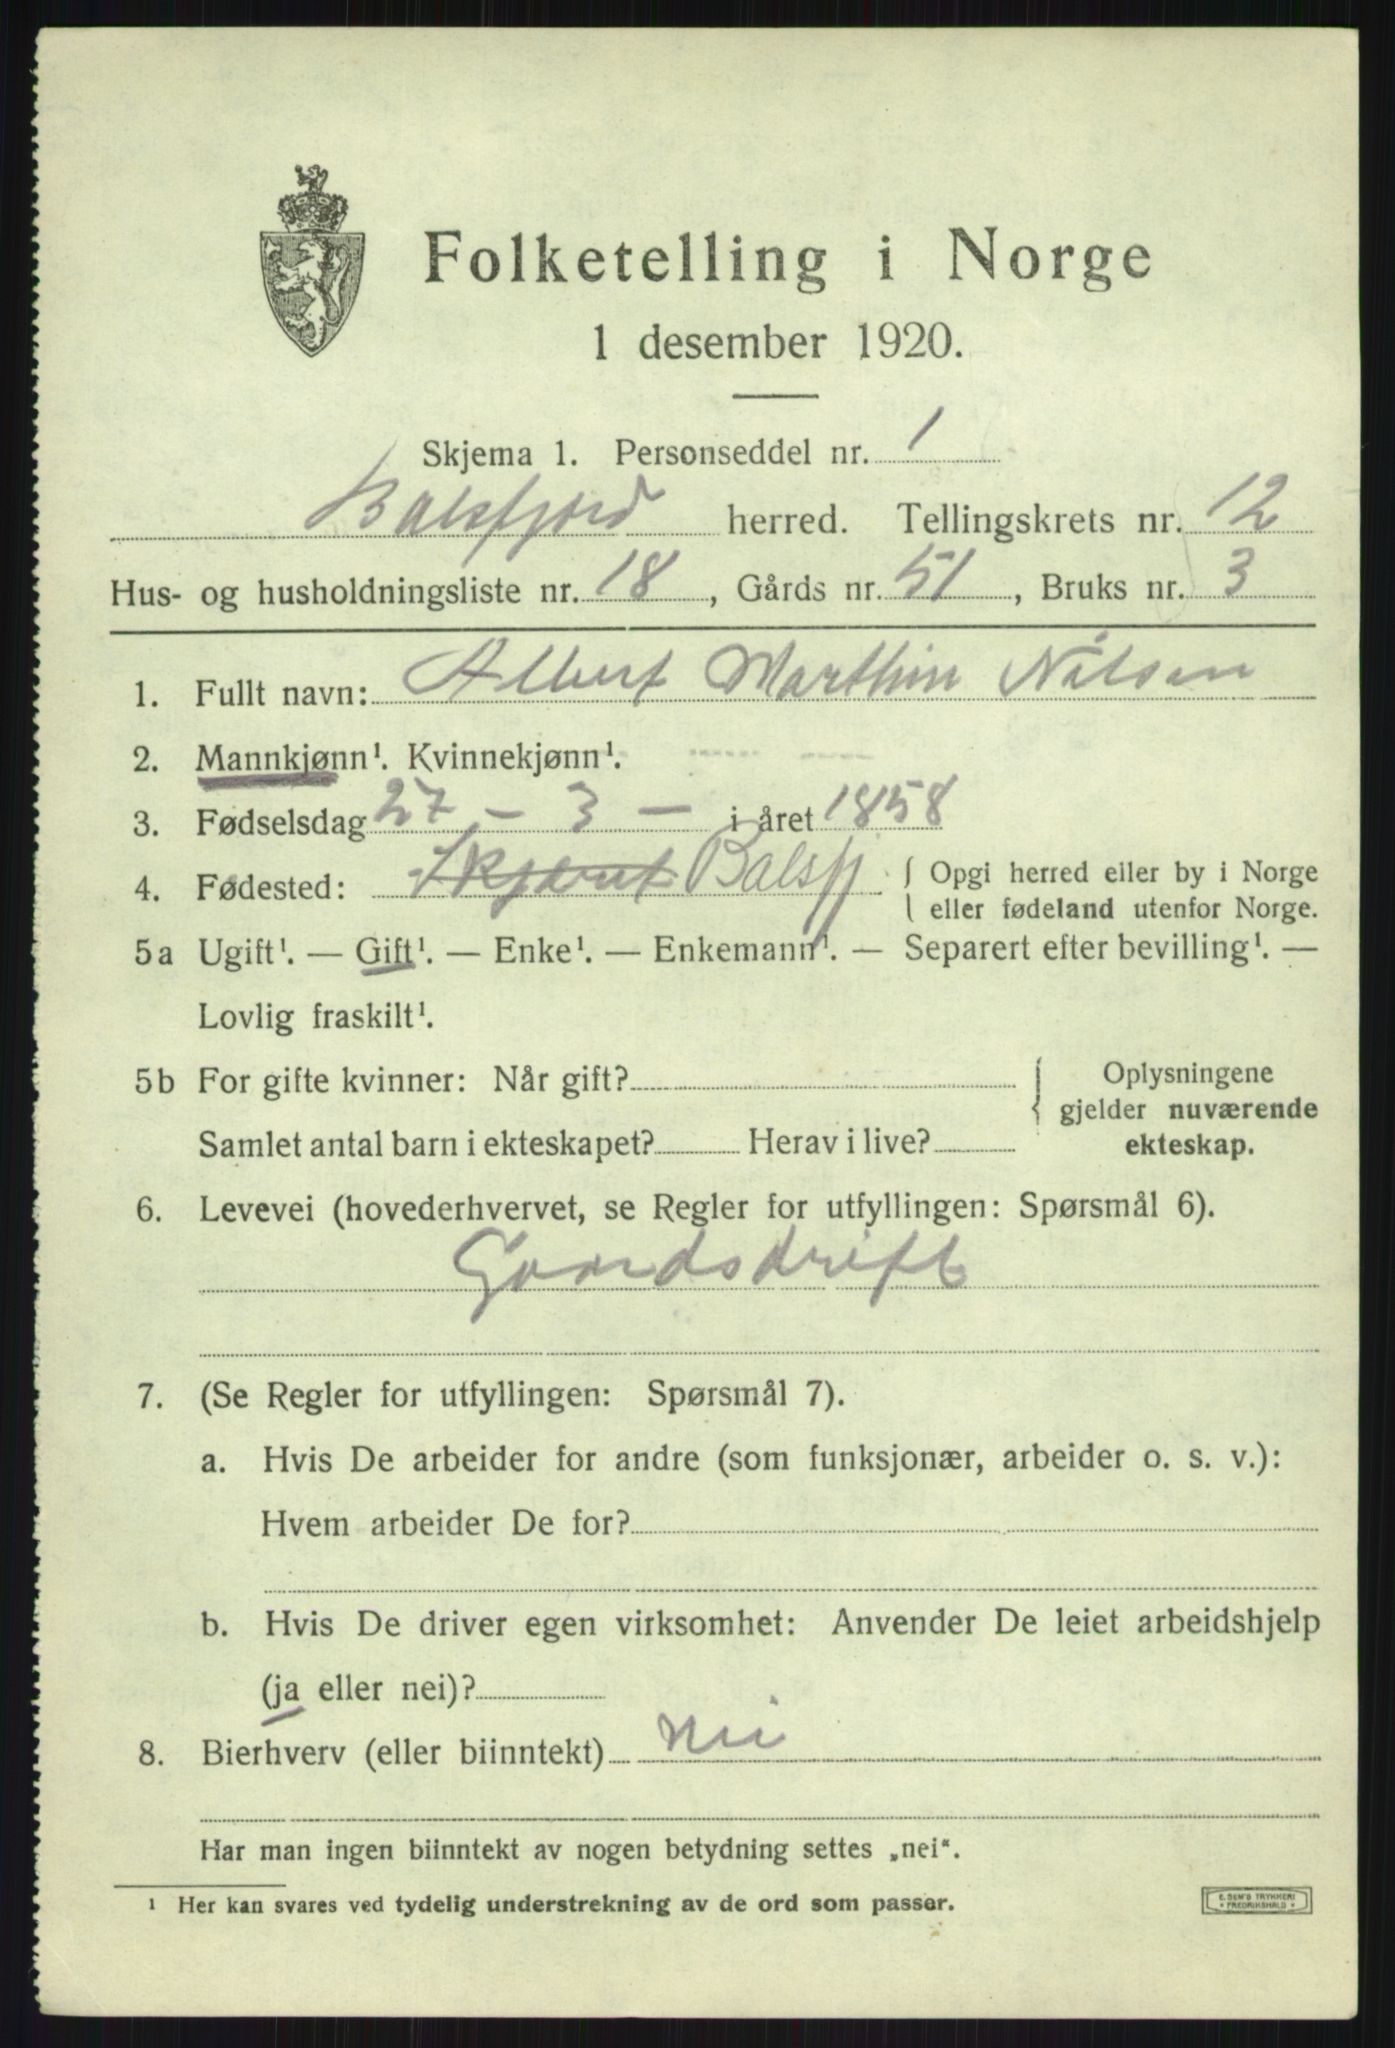 Folketelling i Norge
1 desember 1920.
Skjema 1. Personseddel nr. 1
Balsfjord herred. Tellingskrets nr. 12
Hus- og husholdningsliste nr. 18, Gårds nr. 51, Bruks nr. 3
1. Fullt navn: Albert Marthin Nilsen
2. Mannkjønn¹. Kvinnekjønn¹.
3. Fødselsdag 27 - 3 - i året 1858
4. Fødested: Balsfj { Opgi herred eller by i Norge
eller fødeland utenfor Norge.
5a Ugift¹. — Gift¹. — Enke¹. — Enkemann¹. — Separert efter bevilling¹. —
Lovlig fraskilt¹.
5b For gifte kvinner: Når gift? { Oplysningene
gjelder nuværende
Samlet antal barn i ekteskapet? Herav i live? ekteskap.
6. Levevei (hovederhvervet, se Regler for utfyllingen: Spørsmål 6).
Gaardsdrift
7. (Se Regler for utfyllingen: Spørsmål 7).
a. Hvis De arbeider for andre (som funksjonær, arbeider o. s. v.):
Hvem arbeider De for?
b. Hvis De driver egen virksomhet: Anvender De leiet arbeidshjelp
(ja eller nei)?
8. Bierhverv (eller biinntekt) nei
Har man ingen biinntekt av nogen betydning settes „nei“.
¹ Her kan svares ved tydelig understrekning av de ord som passer.
E. SEM'S TRYKKERI
* FREDRIKSHALD *